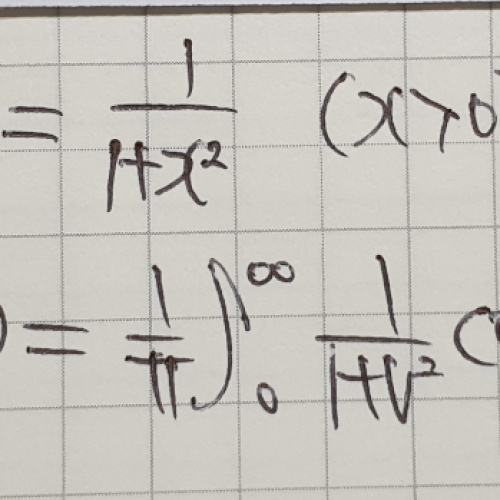 = 1/(1+x²) (x>0
) = 1/π ∫₀^∞ 1/(1+v²) c